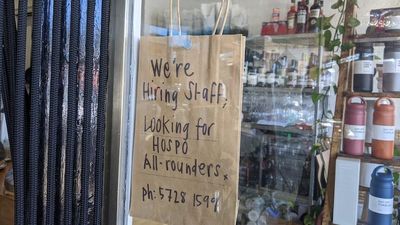 We're
Hiring Staff,
Looking for
HOSPO
All-rounders x
Ph: 5728